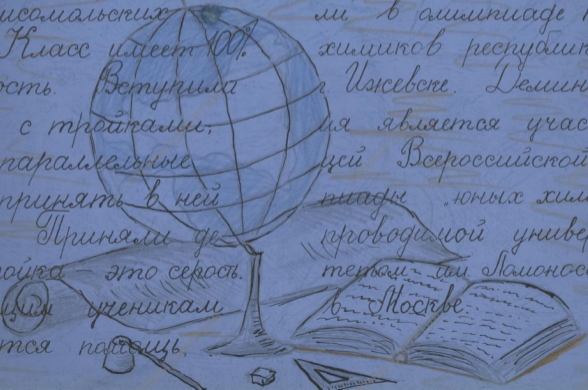 исомольских
Класс имеет 100%
ость. Вступила
с тройками,
параллельные
принять в ней
Приняли де
ройка это серость.
щим ученикам
тся помощь.
ли в олимпиаде
химиков республик
г. Ижевске. Демин
ия является учас
щей Всероссийской
пиады "юных хим
проводимой универ
тетом им Ломонос
в Москве